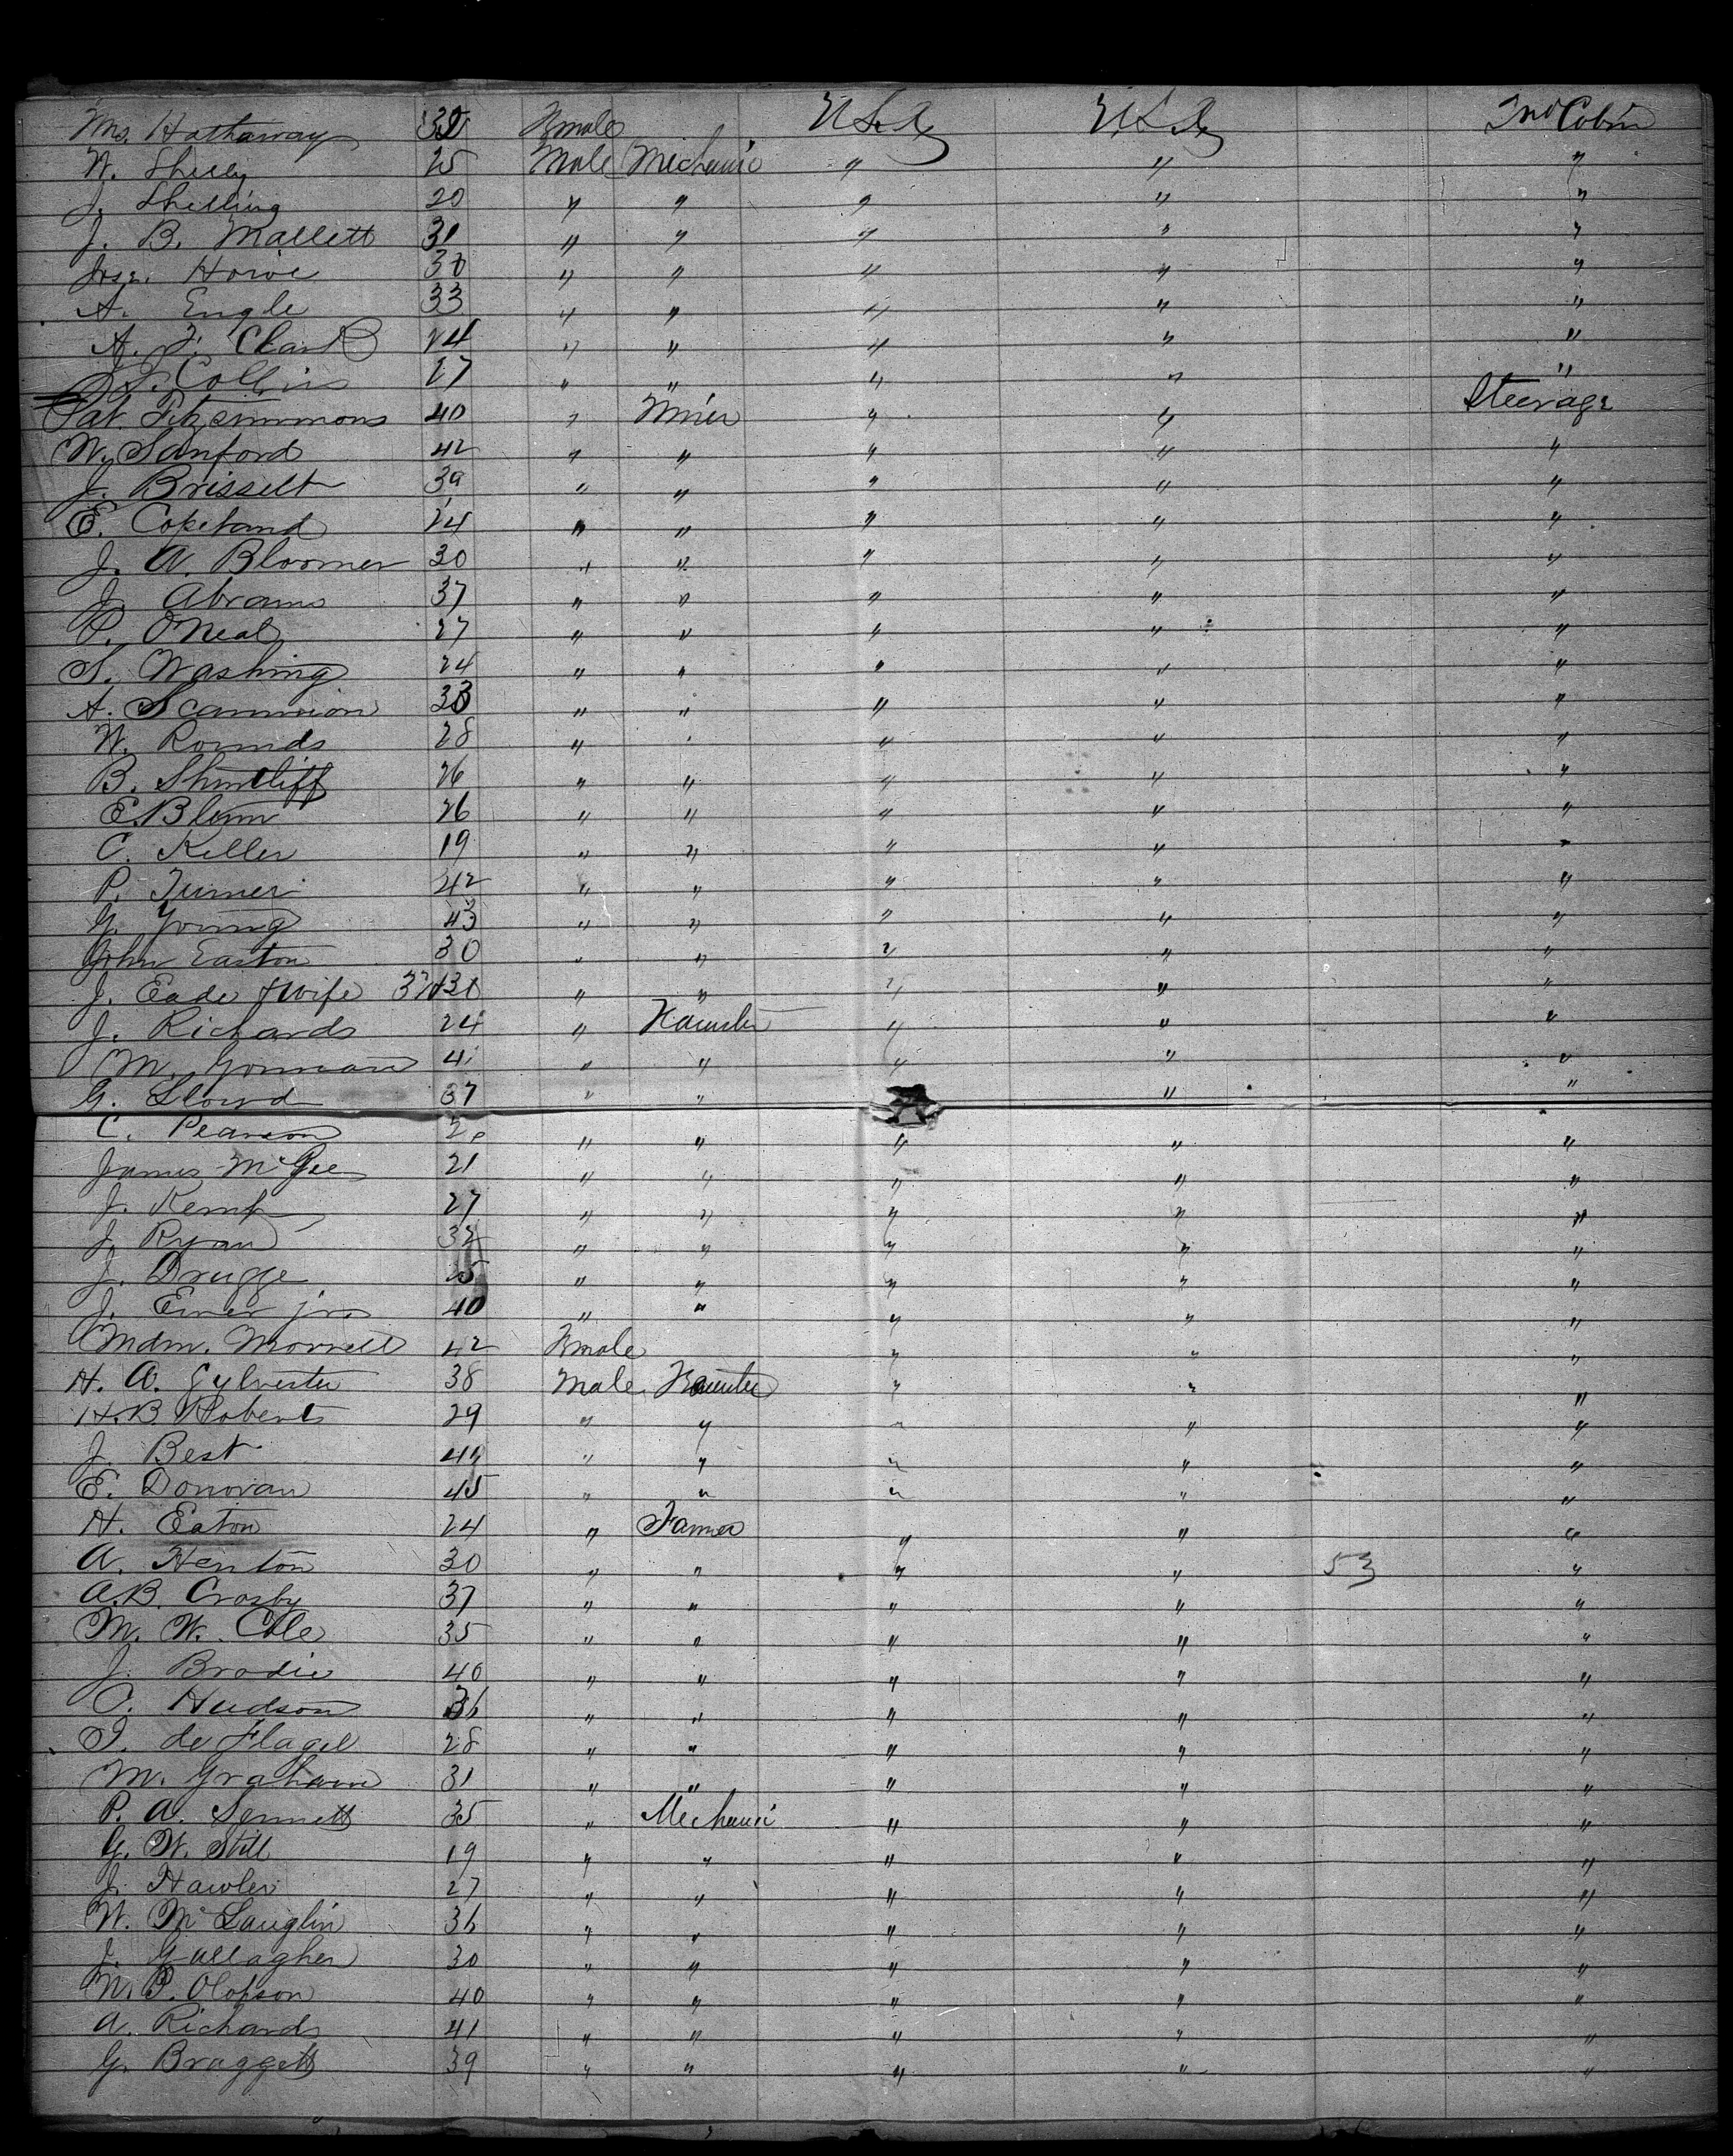 Mrs. Hathaway 32 Female U.S.A. U.S.A. 2nd Cabin
W. Shelly 25 Male Mechanic " " "
J. Shelling 20 " " " " "
J. B. Mallett 31 " " " " "
Howe 30 " " " " "
A. Engle 33 " " " " "
A. F. Clark 24 " " " " "
J. Collins 27 " " " " "
Pat. Fitzsimmons 40 " Miner " " Steerage
W. Sanford 42 " " " " "
J. Brisselt 39 " " " " "
E. Copeland 24 " " " " "
J. A. Bloomer 30 " " " " "
J. Abrams 37 " " " " "
P. O'Neal 27 " " " " "
S. Washing 24 " " " " "
A. Scammion 33 " " " " "
W. Rounds 28 " " " " "
B. Shurtliff 26 " " " " "
E. Blunn 26 " " " " "
C. Keller 19 " " " " "
P. Turner 42 " " " " "
G. Young 43 " " " " "
John Easton 30 " " " " "
J. Eade & wife " " " " "
J. Richards 24 " " " "
M. Gorman " " " " "
G. Slowd 37 " " " " "
C. Pearson " " " " "
James McGee 21 " " " " "
J. Kemp 27 " " " " "
J. Ryan 32 " " " " "
J. Drugge 25 " " " " "
J. jr. 40 " " " " "
Mdm. Morrell 42 Female " " "
H. A. Sylvester 38 Male " " "
H. B. Roberts 29 " " " " "
J. Best " " " " "
E. Donovan 45 " " " " "
H. Eaton 24 " Farmer " " "
A. Henton 30 " " " " 53 "
A. B. Crosby 37 " " " " "
M. W. Cole 35 " " " " "
J. Brodie 40 " " " " "
C. Hudson 36 " " " " "
de Flagel 28 " " " " "
M. Graham 31 " " " " "
P. A. Sennett 35 " Mechanic " " "
G. W. Still 19 " " " " "
J. Hawler 27 " " " " "
W. McLauglin 36 " " " " "
J. Gallagher 30 " " " " "
N. P. Olofson 40 " " " " "
A. Richards 41 " " " " "
G. Braggett 39 " " " " "